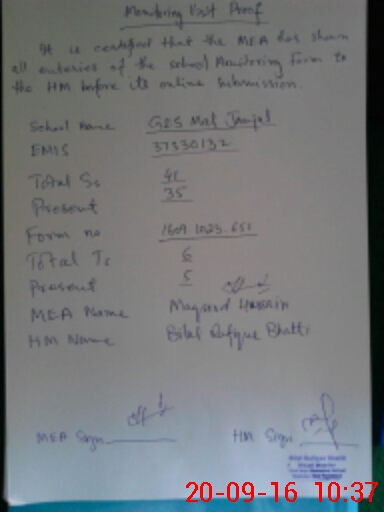 Monitoring Visit Proof
It is certified that the MEA has shown
all enteries of the school Monitoring Form to
the HM before its online submission.
School Name GES Mal Jangal
EMIS 37330132
Total Ss 41
Present 35
Form no 1609.1023.651
Total Ts 6
Present 5
MEA Name Maqsood Hussain
HM Name Bilal Rafique Bhatti
MEA Sign
HM Sign
Bilal Rafique Bhatti
20-09-16 10:37